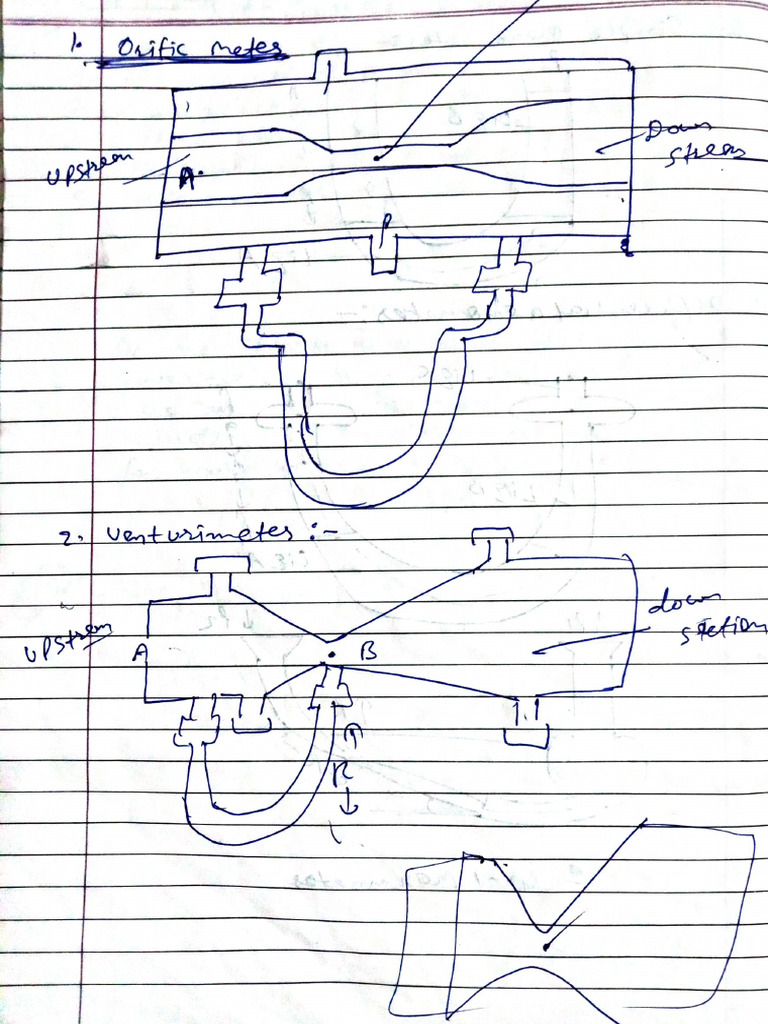 1. Orific meter
upstream
A.
Down
stream
P
2. Venturimeter :-
upstream
A
B
down
station
R